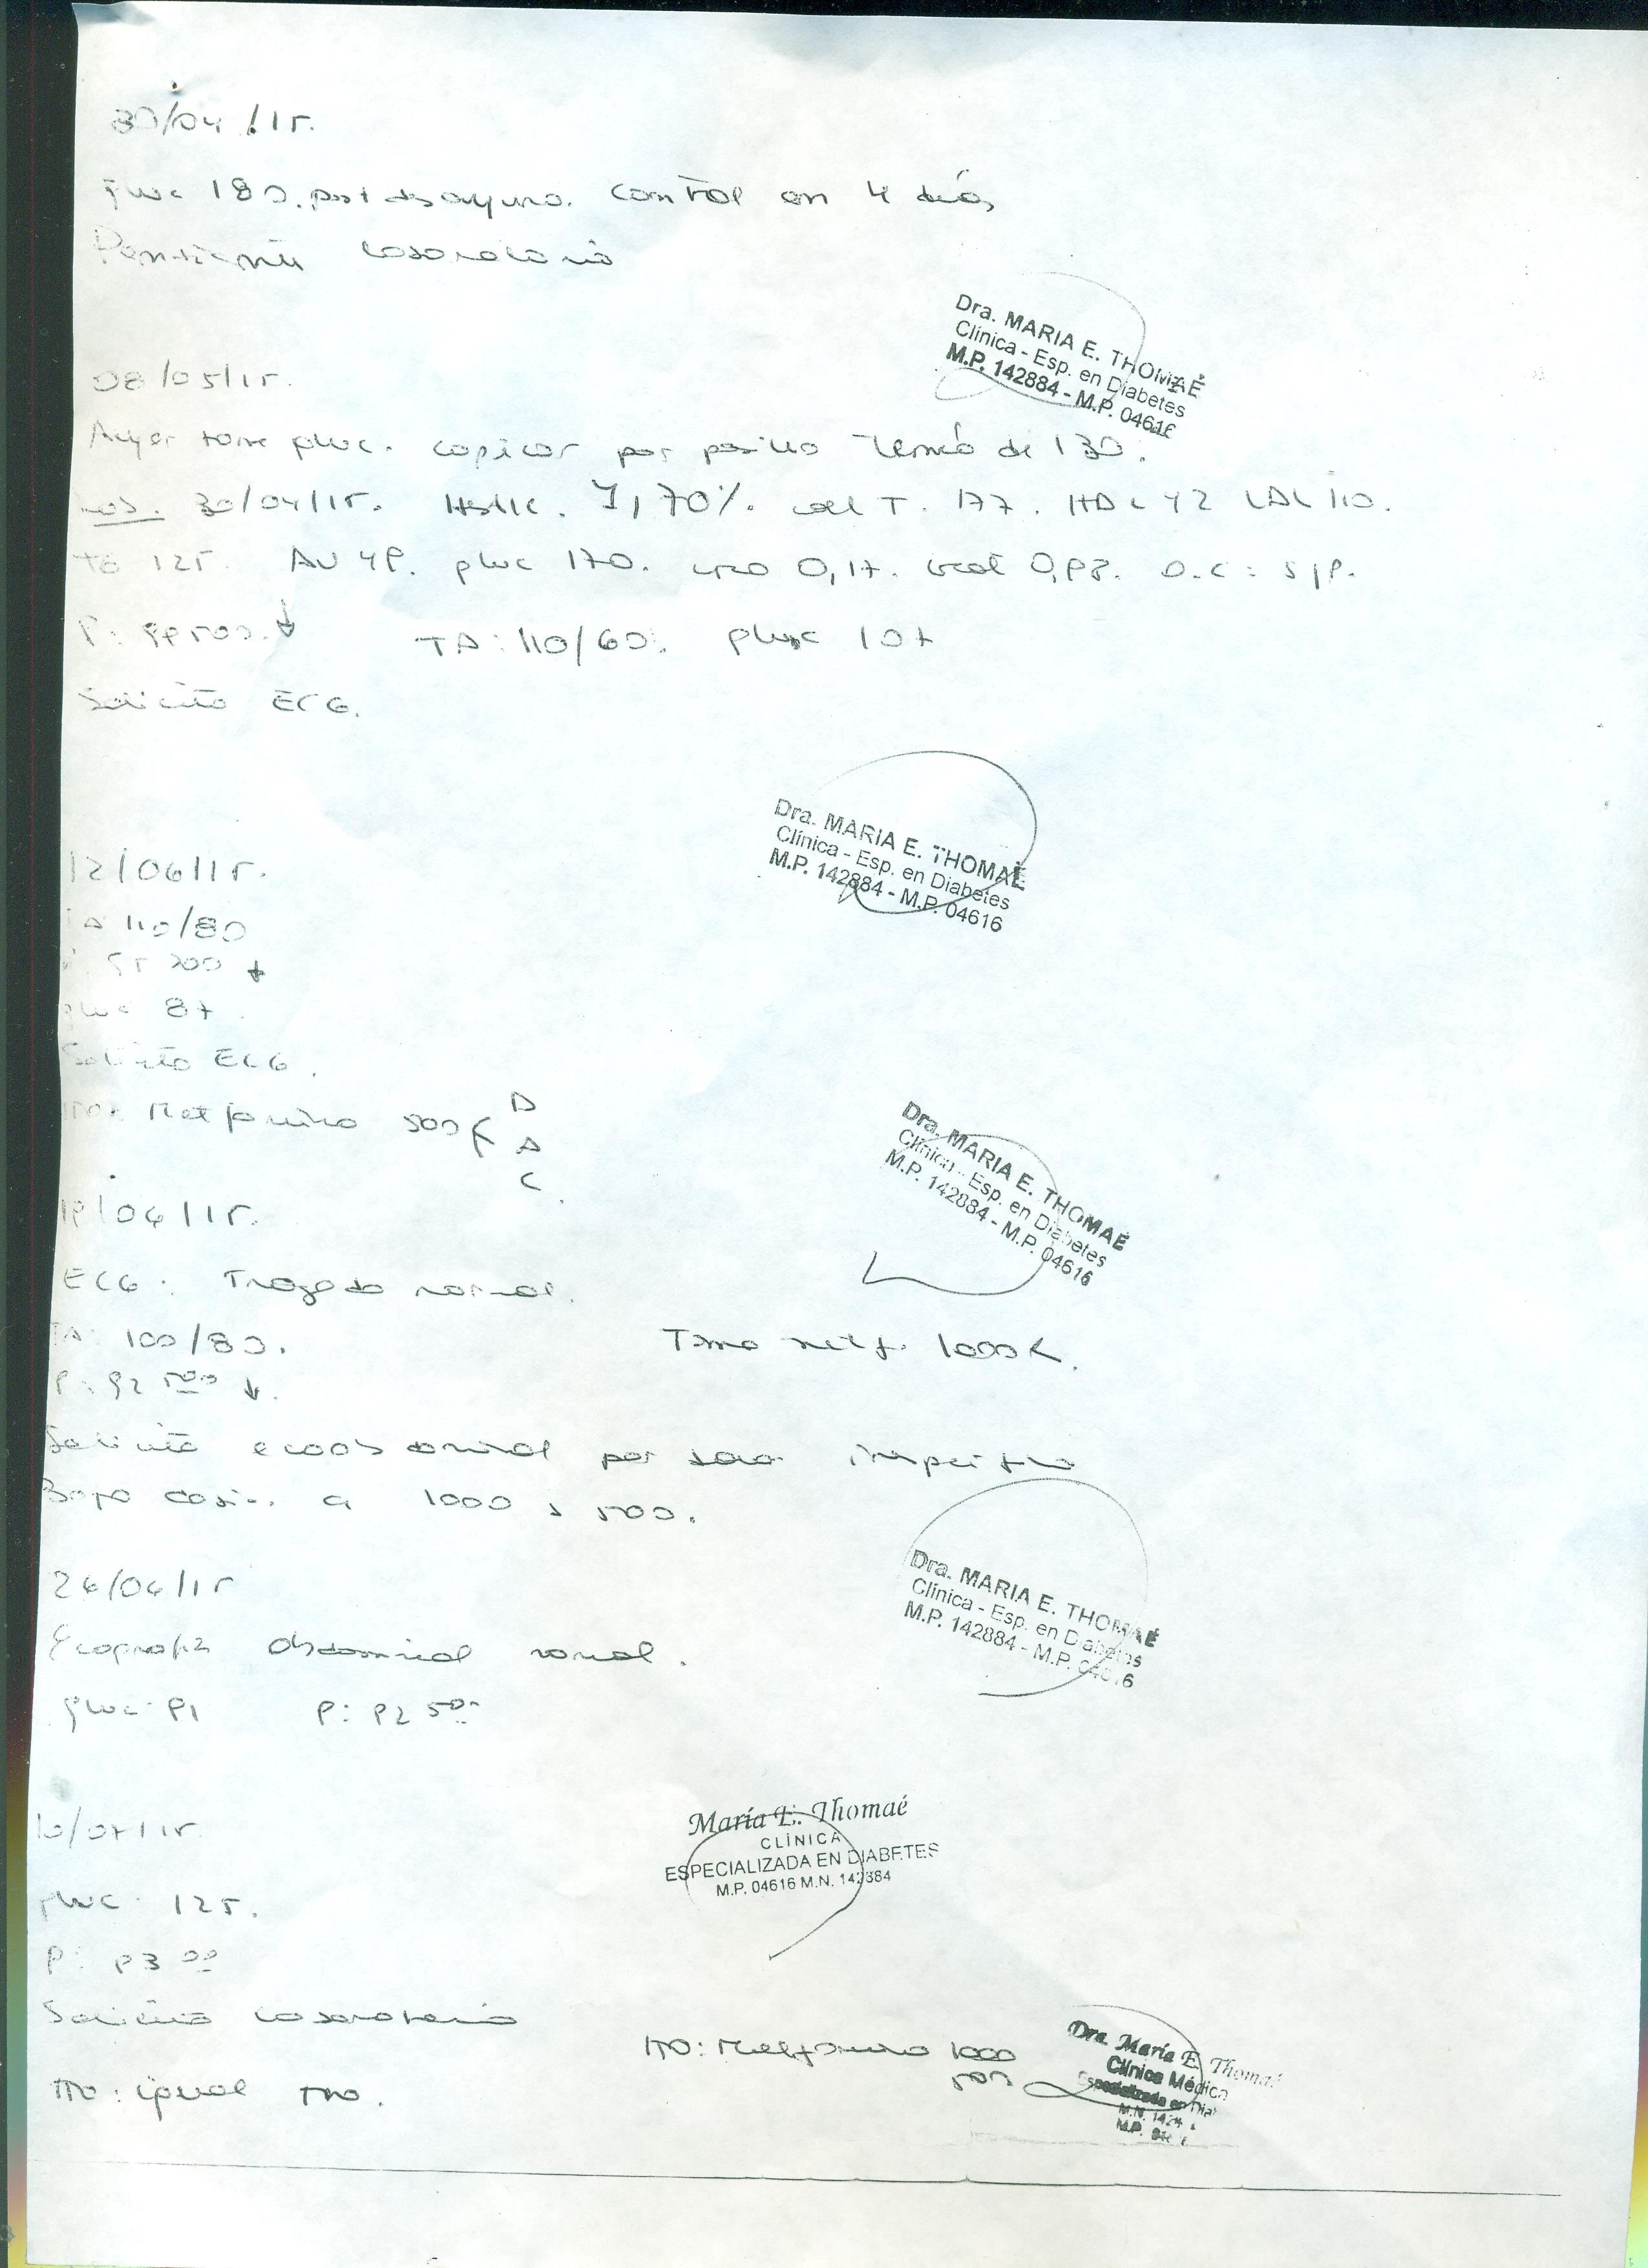 30/04/15.
gluc 180. post desayuno. Control en 4 días
Pendiente laboratorio
Dra. MARIA E. THOMAÉ
Clínica - Esp. en Diabetes
M.P. 142884 - M.P. 04616
08/05/15.
Ayer tome gluc. capilar por pasillo tenía de 130.
30/04/15. HbA1c. 7,70%. col T. 177. HDL 42 LDL 110.
TG 125. AU 49. gluc 170. urea 0,17. creat 0,93. O.C: s/p.
P: 99500 ↓ TA: 110/60. gluc 107
Solicito ECG.
Dra. MARIA E. THOMAÉ
Clínica - Esp. en Diabetes
M.P. 142884 - M.P. 04616
12/06/15.
TA 110/80
P. 95 200 ↓
gluc 87.
Solicito ECG.
TTO: Metformina 500 < D
A
C.
Dra. MARIA E. THOMAÉ
Clínica - Esp. en Diabetes
M.P. 142884 - M.P. 04616
19/06/15.
ECG: Trazado normal.
TA: 100/80. Toma metf. 1000
P: 92 500 ↓.
Solicito eco abdominal por dolor
Bajo dosis. a 1000 y 500.
Dra. MARIA E. THOMAÉ
Clínica - Esp. en Diabetes
M.P. 142884 - M.P. 04616
26/06/15
Ecografía abdominal normal.
gluc: 91 P: 92 500
María E. Thomaé
CLÍNICA
ESPECIALIZADA EN DIABETES
M.P. 04616 M.N. 142884
10/07/15
gluc: 125.
P: 93 00
Solicito laboratorio
TTO: Metformina 1000
500
TTO: igual TTO.
Dra. María E. Thomaé
Clínica Médica
Especializada en Dia
M.N. 142
M.P.